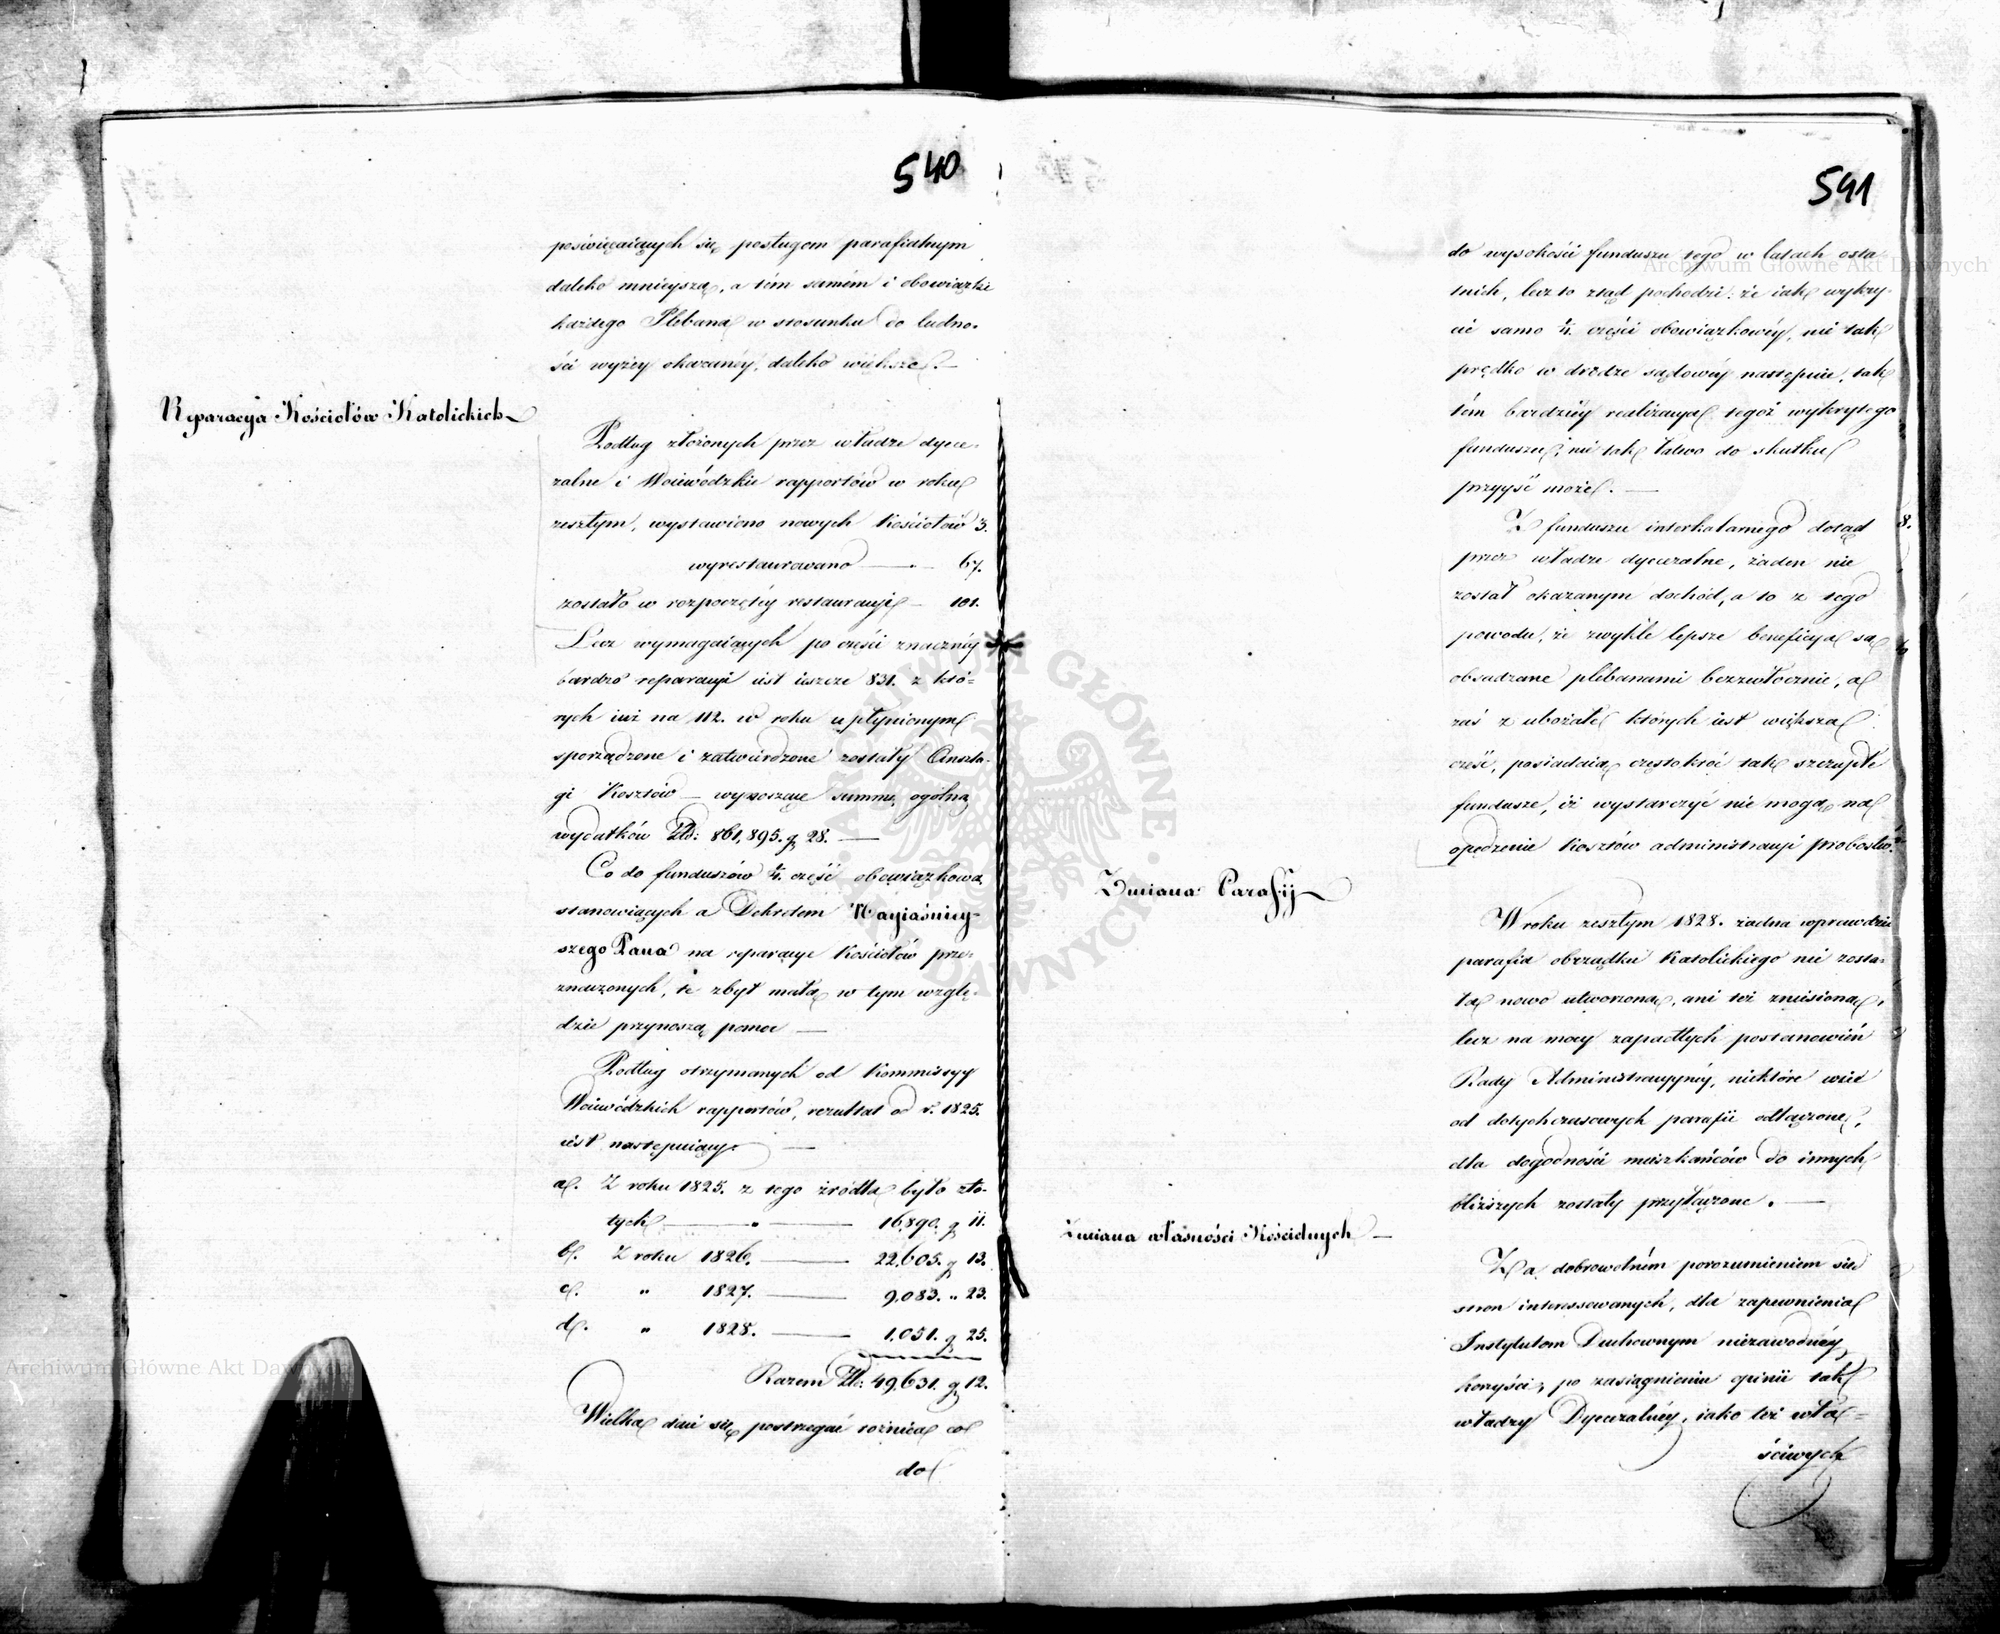 540
poświęcaiących się posługom parafialnym
daleko mnieyszą, a tém samém i obowiązki
każdego Plebana w stosunku do ludno-
ści wyżey okazanéy, daleko większe. —
Reparacyja Kościołów Katolickich
Podług złożonych przez władze dyece-
zalne i Woiewódzkie rapportów w roku
zeszłym, wystawiono nowych Kościołów 3.
wyrestaurowano — 67.
zostało w rozpoczętéy restauracyi — 101.
Lecz wymagaiących po części znacznéy
bardzo reparacyi iest ieszcze 831. z któ-
rych iuż na 112. w roku upłynionym
sporządzone i zatwierdzone zostały Anszla-
gi Kosztów — wynoszące summę ogólną
wydatków Złp: 861,895. g 28. —
Co do funduszów ¼. część obowiązkową
stanowiących a Dekretem Nayiaśniey-
szego Pana na reparacye Kościołów prze-
znaczonych, te zbyt małą w tym wzglę-
dzie przynoszą pomoc —
Podług otrzymanych od Kommissyy
Woiewódzkich rapportów, rezultat od r. 1825.
iest następuiący. —
a. Z roku 1825. z tego źródła było zło-
tych — 16,890. g 11.
b. Z roku 1826. — 22,605. g 13.
c. " 1827. — 9,083. " 23.
d. " 1828. — 1,051. g 25.
Razem Złp: 49,631. g 12.
Wielka daie się postrzegać różnica co
do
541
do wysokości funduszu tego w latach osta-
tnich, lecz to ztąd pochodzi: że iak wykry-
cie samo ¼. części obowiązkowéy, nie tak
prędko w drodze sądowéy nastąpić, tak
tém bardziéy realizacya tegoż wykrytego
funduszu, nie tak łatwo do skutku
przyyść może. —
Z funduszu interkalarnego dotąd
przez władze dyecezalne, żaden nie
został okazanym dochód, a to z tego
powodu, że zwykle lepsze beneficya są
obsadzane plebanami bezzwłocznie, a
zaś z ubożałe których iest większa
cześć, posiadaią częstokroć tak szczupłe
fundusze, iż wystarczyć nie mogą na
opędzenie kosztów administracyi probostw.
Zmiana Parafij
W roku zeszłym 1828. żadna wprawdzie
parafia obrządku Katolickiego nie zosta-
ła nowo utworzona, ani też zniesiona,
lecz na mocy zapadłych postanowień
Rady Administracyjnéy, niektóre wsie
od dotychczasowych parafii odłączone,
dla dogodności mieszkańców do innych
bliższych zostały przyłączone. —
Zmiana własności Kościelnych —
Za dobrowolném porozumieniem się
stron interessowanych, dla zapewnienia
Instytutom Duchownym niezawodnéy
korzyści, po zasiągnieniu opinii tak
władzy Dyecezalnéy, iako też wła-
ściwych